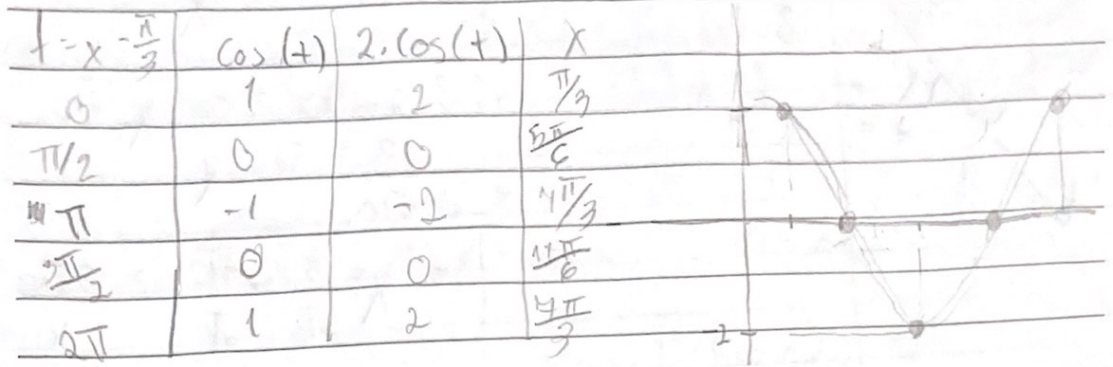 t = x - π/3 cos(t) 2.cos(t) x
0 1 2 π/3
π/2 0 0 5π/6
π -1 -2 4π/3
3π/2 0 0 11π/6
2π 1 2 7π/3
-2